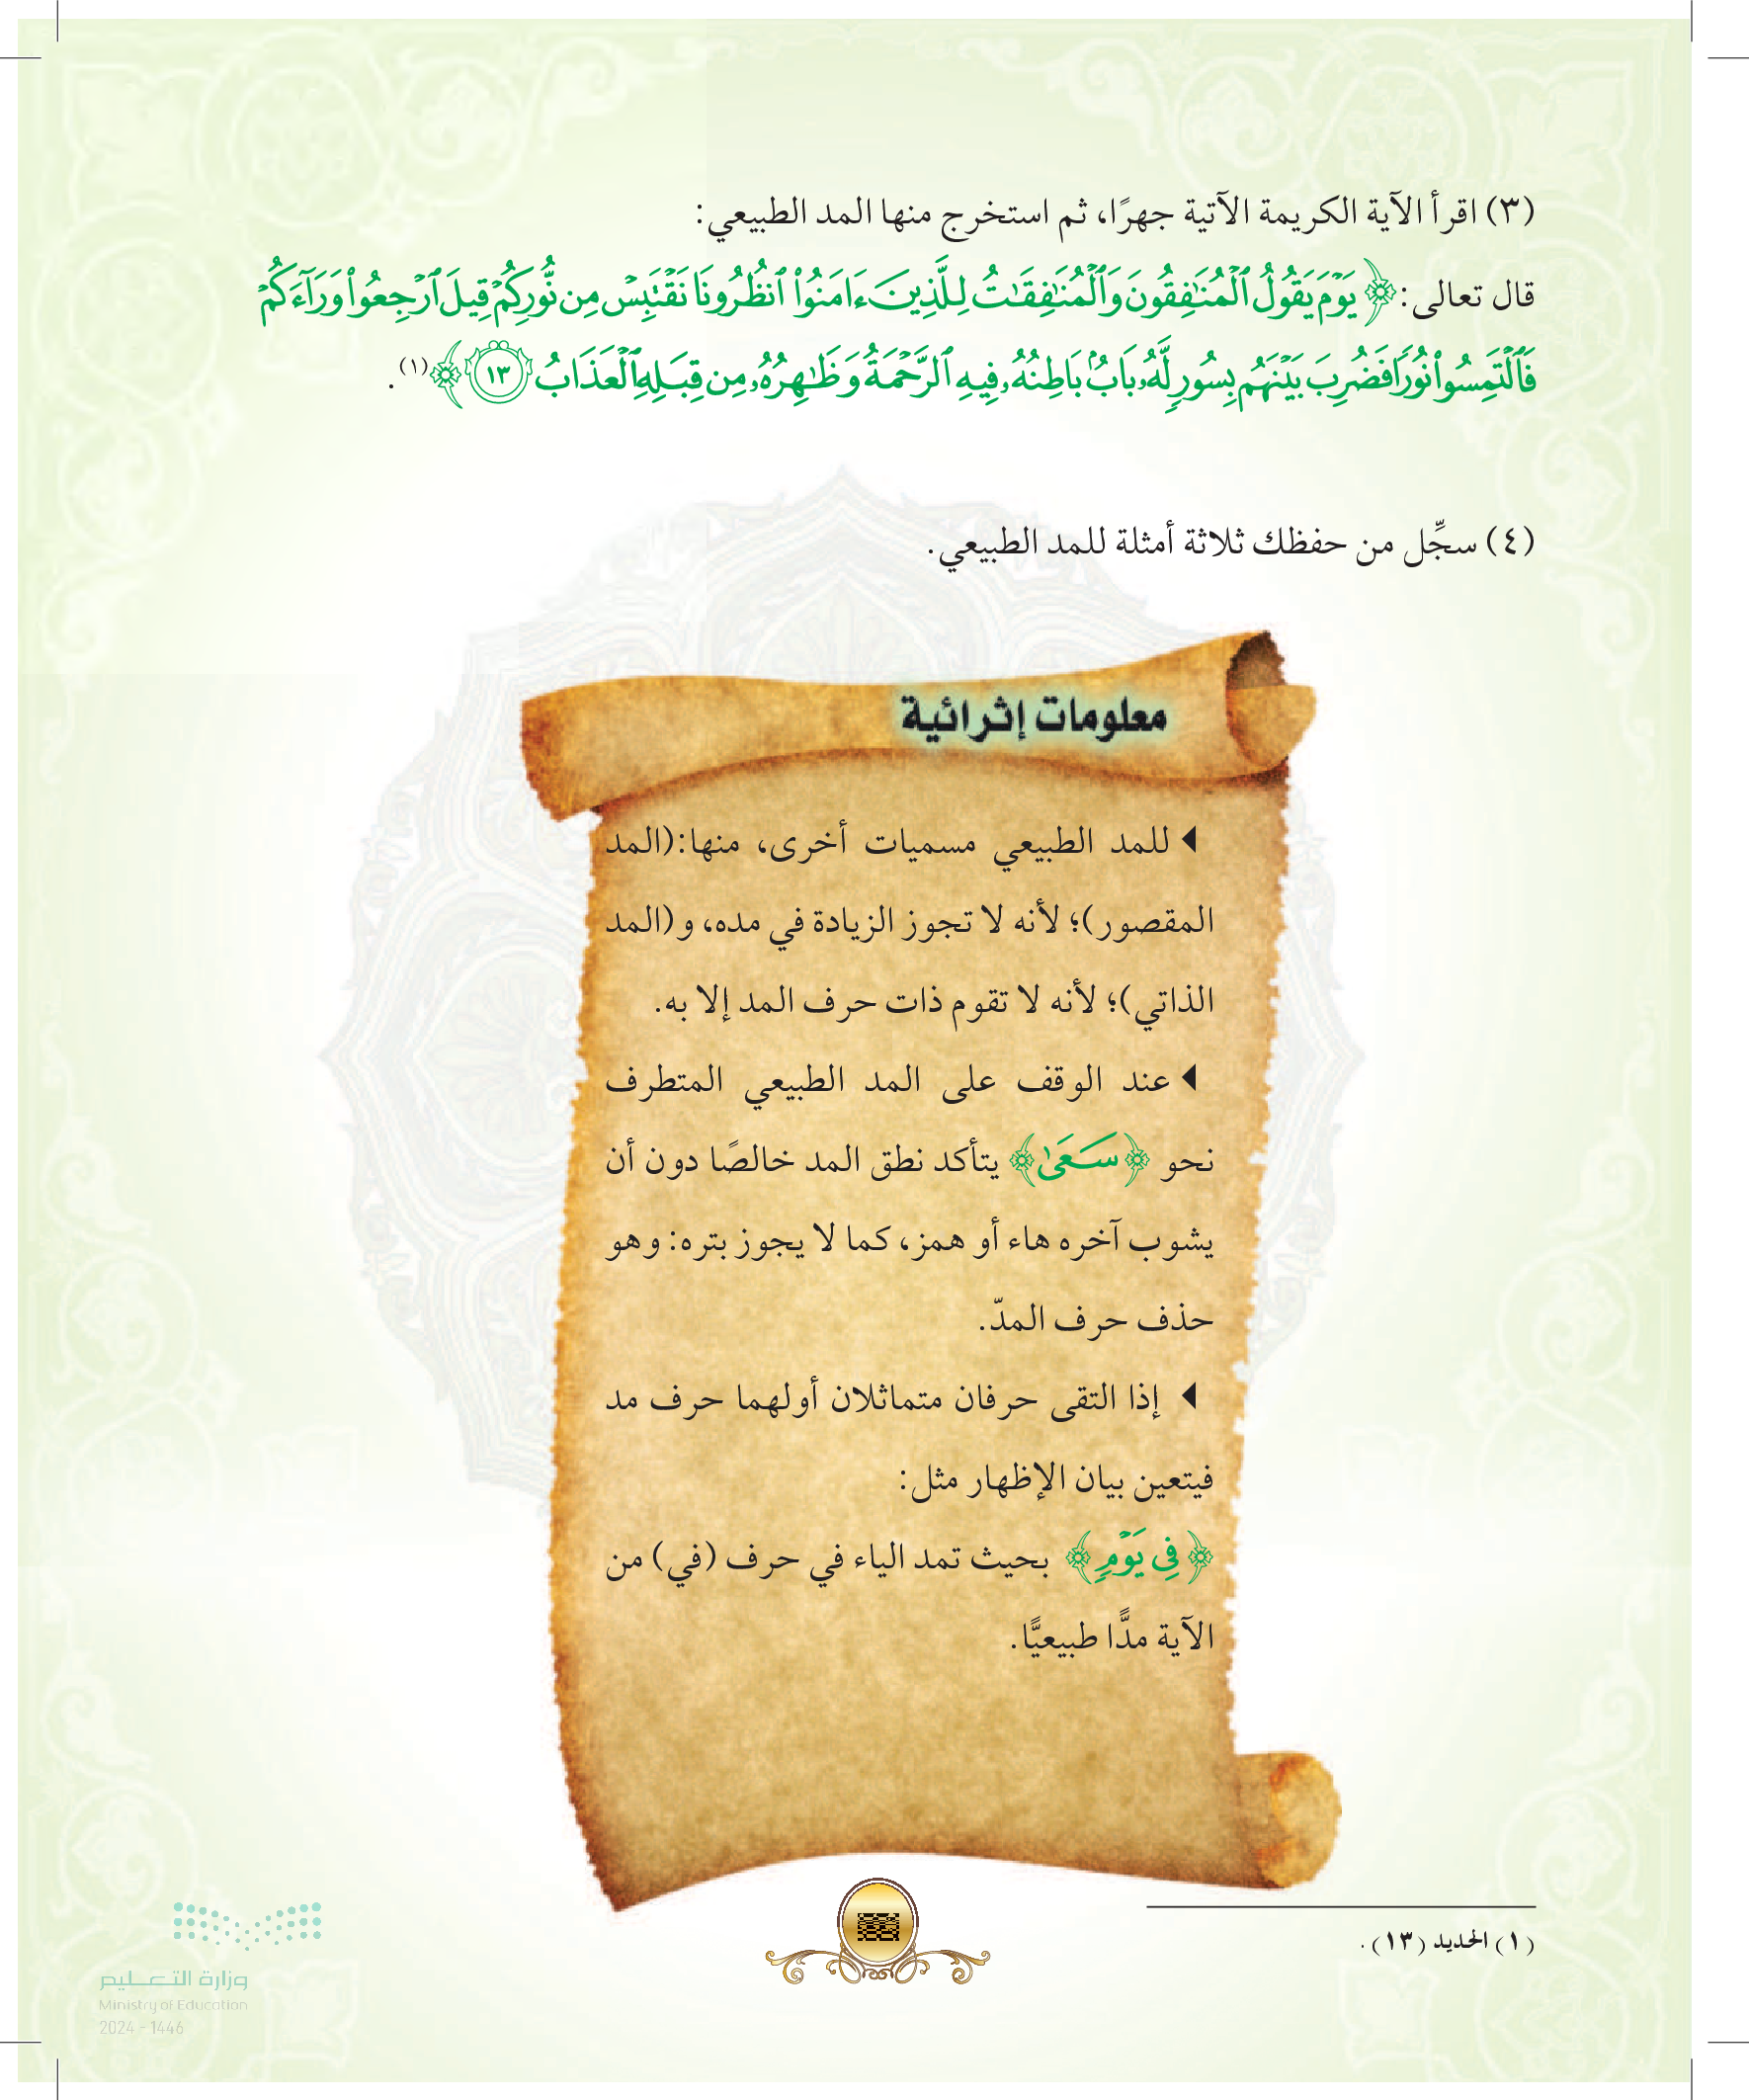 (٣) اقرأ الآية الكريمة الآتية جهرًا، ثم استخرج منها المد الطبيعي:
قال تعالى: ﴿يَوْمَ يَقُولُ ٱلْمُنَٰفِقُونَ وَٱلْمُنَٰفِقَٰتُ لِلَّذِينَ ءَامَنُوا۟ ٱنظُرُونَا نَقْتَبِسْ مِن نُّورِكُمْ قِيلَ ٱرْجِعُوا۟ وَرَآءَكُمْ
فَٱلْتَمِسُوا۟ نُورًا فَضُرِبَ بَيْنَهُم بِسُورٍ لَّهُۥ بَابٌۢ بَاطِنُهُۥ فِيهِ ٱلرَّحْمَةُ وَظَٰهِرُهُۥ مِن قِبَلِهِ ٱلْعَذَابُ ١٣﴾(١).
(٤) سجِّل من حفظك ثلاثة أمثلة للمد الطبيعي.
معلومات إثرائية
للمد الطبيعي مسميات أخرى، منها:(المد
المقصور)؛ لأنه لا تجوز الزيادة في مده، و(المد
الذاتي)؛ لأنه لا تقوم ذات حرف المد إلا به.
عند الوقف على المد الطبيعي المتطرف
نحو ﴿سَعَىٰ﴾ يتأكد نطق المد خالصًا دون أن
يشوب آخره هاء أو همز، كما لا يجوز بتره: وهو
حذف حرف المدّ.
إذا التقى حرفان متماثلان أولهما حرف مد
فيتعين بيان الإظهار مثل:
﴿فِى يَوْمٍ﴾ بحيث تمد الياء في حرف (في) من
الآية مدًّا طبيعيًّا.
(١) الحديد (١٣).
وزارة التعليم
Ministry of Education
2024 - 1446